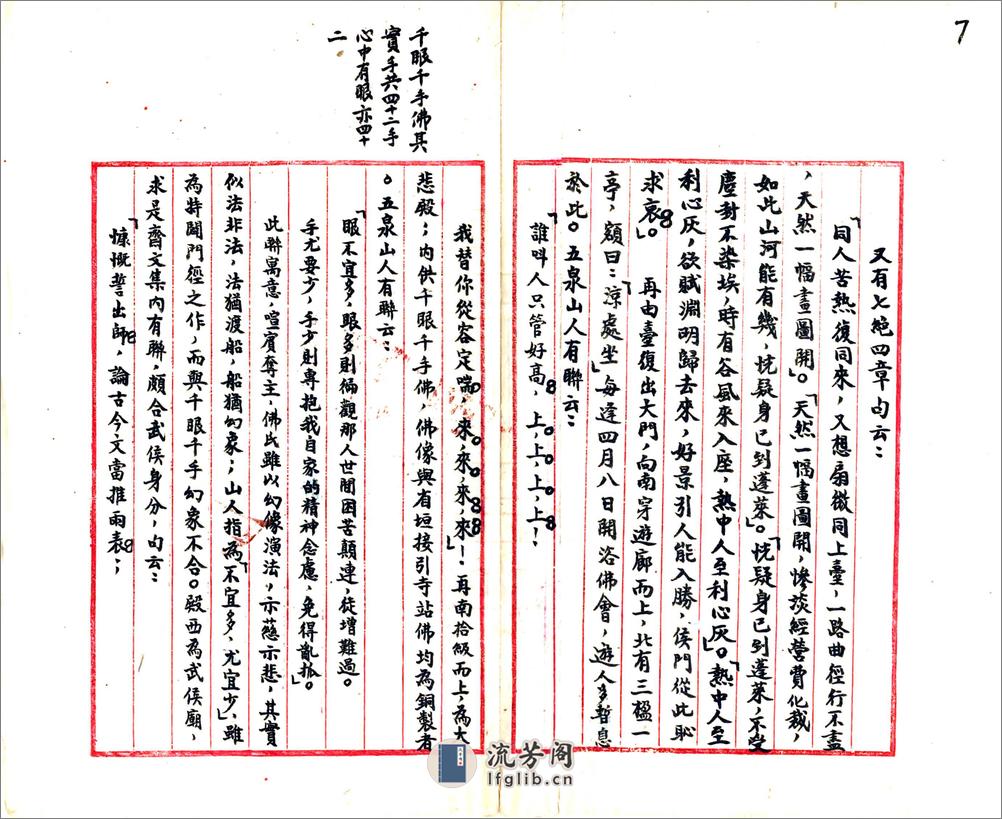 7
又有七絕四章句云：
「同人苦熱復同來，又想扇微同上臺，一路曲徑行不盡
，天然一幅畫圖開」。「天然一幅畫圖開，慘淡經營費化裁，
如此山河能有幾，恍疑身已到蓬萊」。「恍疑身已到蓬萊，不受
塵封不染埃，時有谷風來入座，熱中人至利心灰」。「熱中人至
利心灰，欲賦淵明歸去來，好景引人能入勝，侯門從此恥
求哀」。 再由臺復出大門，向南穿遊廊而上，北有三楹一
亭，額曰：「涼處坐」每逢四月八日開浴佛會，遊人多暫息
於此。五泉山人有聯云：
「誰叫人只管好高，上，上，上，上！
我替你從容定喘，來，來，來，來」！再南拾級而上，為大
悲殿；內供千眼千手佛，佛像與有垣接引寺站佛均為銅製者
。五泉山人有聯云：
「眼不宜多，眼多則徧觀那人世間困苦顛連，徒增難過。
手尤要少，手少則專抱我自家的精神念慮，免得亂抓」。
此聯寓意，喧賓奪主，佛氏雖以幻像演法，示慈示悲，其實
似法非法，法猶渡船，船猶幻象；山人指為「不宜多、尤宜少」，雖
為特闢門徑之作，而與千眼千手幻象不合。殿西為武侯廟，
求是齋文集內有聯，頗合武侯身分，句云：
「慷慨誓出師，論古今文當推兩表；
千眼千手佛其
實手共四十二手
心中有眼亦四十
二
流芳阁
lfglib.cn